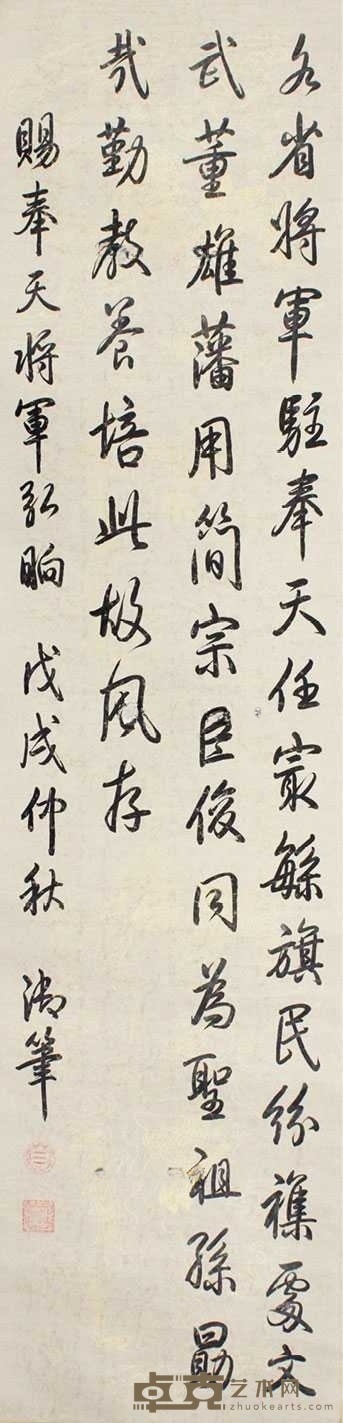 各省將軍駐奉天任㝡緐旗民紛襍處文
武董雄藩用簡宗臣俊同為聖祖孫勗
哉勤教養培此故風存
賜奉天將軍弘晌 戊戌仲秋 御筆
卓克艺术网
zhuokearts.com